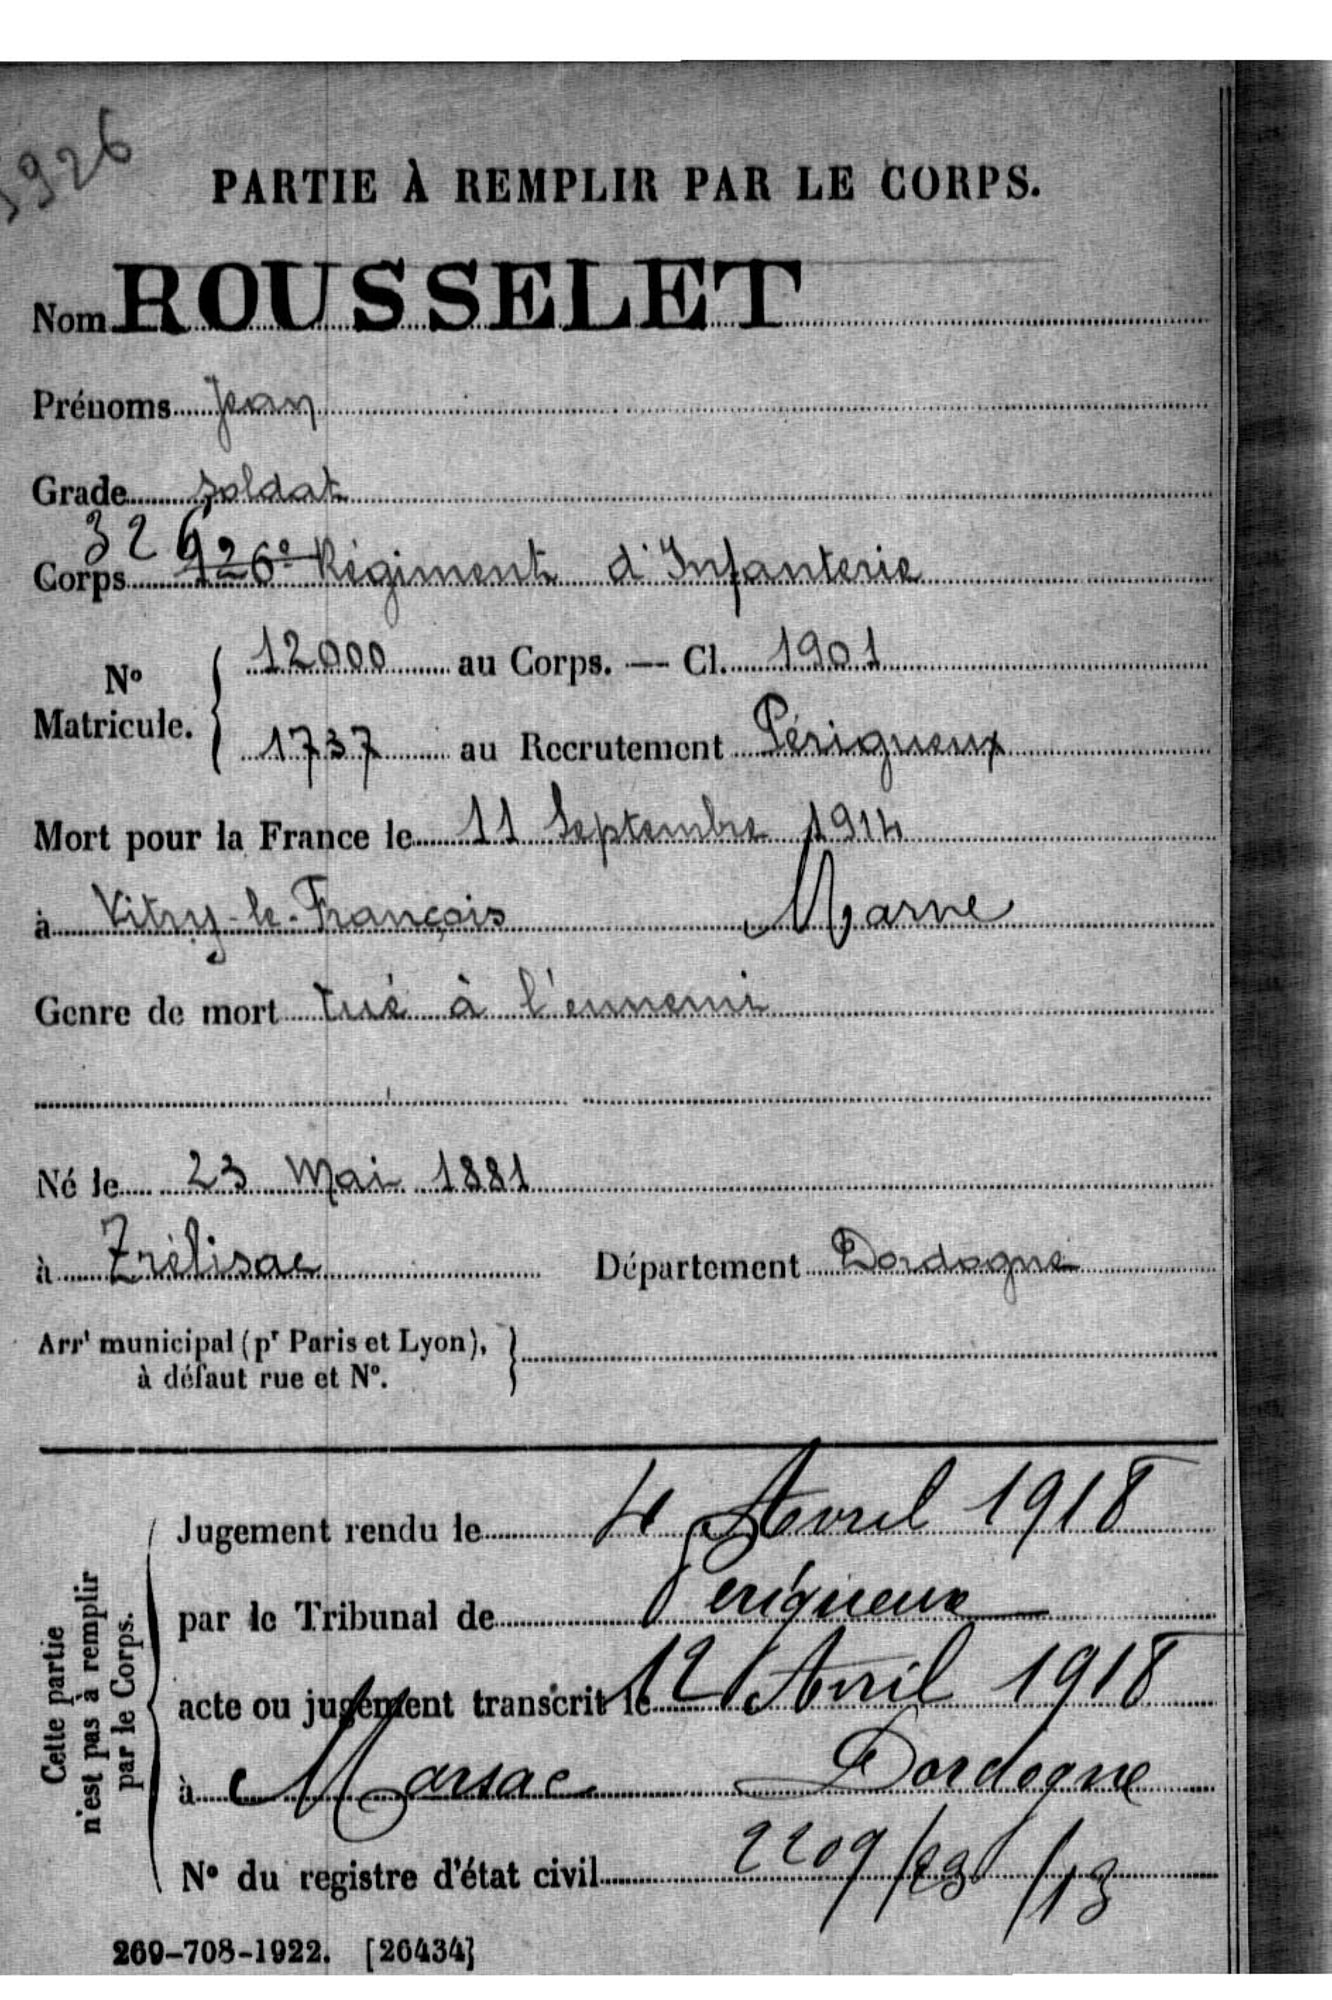 5926
PARTIE À REMPLIR PAR LE CORPS.
Nom ROUSSELET
Prénoms Jean
Grade soldat
326
Corps 126e Régiment d'Infanterie
No Matricule. { 12000 au Corps. — Cl. 1901
1737 au Recrutement Périgueux
Mort pour la France le 11 Septembre 1914
à Vitry-le-François Marne
Genre de mort tué à l'ennemi
Né le 23 Mai 1881
à Trélisac Département Dordogne
Arrt municipal (pr Paris et Lyon), }
à défaut rue et No.
Cette partie
n'est pas à remplir
par le Corps.
Jugement rendu le 4 Avril 1918
par le Tribunal de Périgueux
acte ou jugement transcrit le 12 Avril 1918
à Marsac Dordogne
No du registre d'état civil 2209/23/13
269-708-1922. [26434]